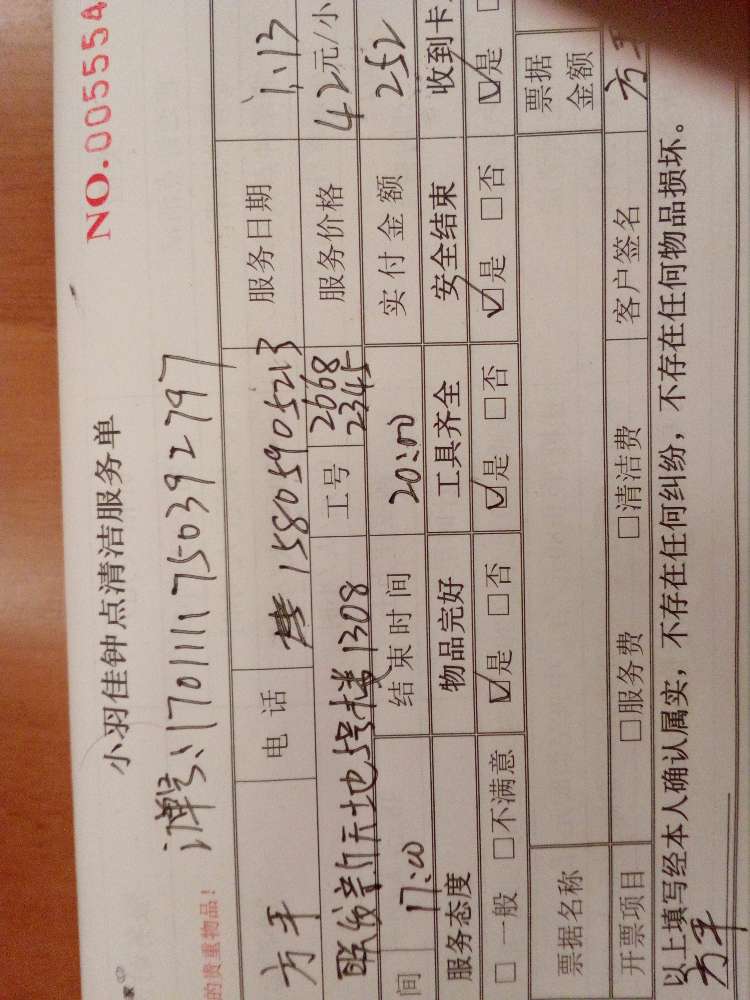 小羽佳钟点清洁服务单
NO.005554
订单号:1701111750392797
的贵重物品!
方平 电话 15805905213 服务日期 1.13
联发新天地5号楼1308 工号 2668 2345 服务价格 42元/小
间 17:00 结束时间 20:00 实付金额 252
服务态度 物品完好 工具齐全 安全结束 收到卡
□一般 □不满意 ☑是 □否 ☑是 □否 ☑是 □否 ☑是
票据名称 票据金额
开票项目 □服务费 □清洁费 客户签名 方平
以上填写经本人确认属实,不存在任何纠纷,不存在任何物品损坏。
方平